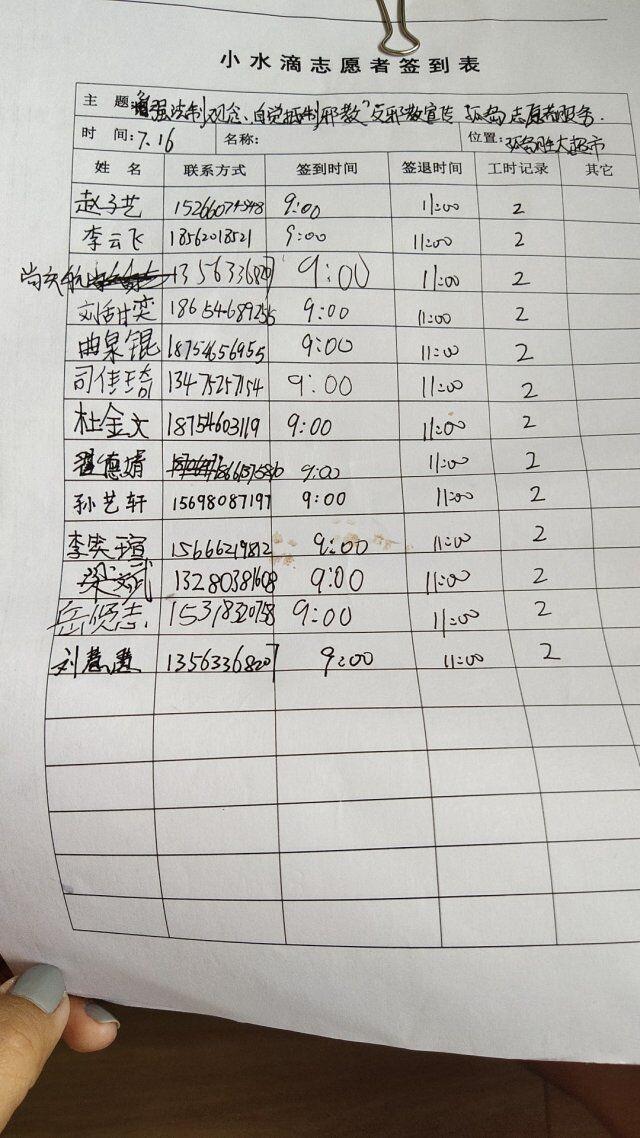 小水滴志愿者签到表
主 题:"增强法制观念、自觉抵制邪教"反邪教宣传 孤岛志愿者服务.
时 间:7.16 名称: 位置:孤岛胜大超市
姓 名 联系方式 签到时间 签退时间 工时记录 其它
赵子艺 15266074548 9:00 11:00 2
李云飞 18562018521 9:00 11:00 2
尚庆航 13563368207 9:00 11:00 2
刘甜奕 18654689255 9:00 11:00 2
曲泉锟 18754656955 9:00 11:00 2
司佳琦 13475257154 9:00 11:00 2
杜金文 18754603119 9:00 11:00 2
翟德婧 9:00 11:00 2
孙艺轩 15698087197 9:00 11:00 2
李奕瑄 15666219812 9:00 11:00 2
梁文武 13280381608 9:00 11:00 2
岳贤志 15318320758 9:00 11:00 2
刘慧 13563368207 9:00 11:00 2